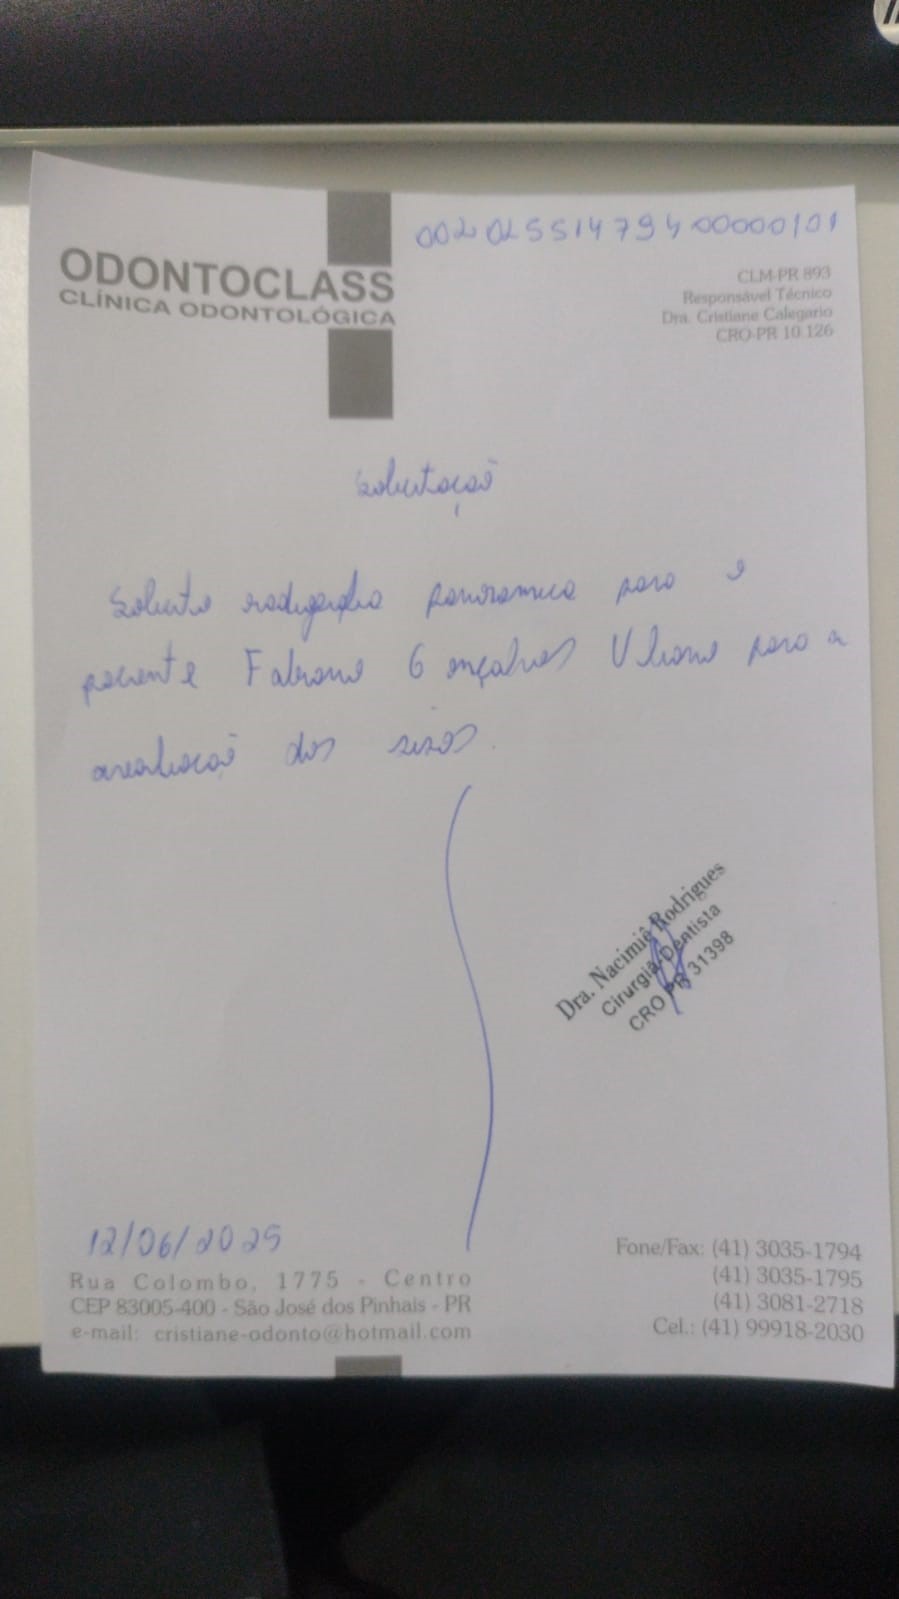 00202551479400000101
ODONTOCLASS
CLÍNICA ODONTOLÓGICA
CLM-PR 893
Responsável Técnico
Dra. Cristiane Calegario
CRO-PR 10.126
Solicitação
Solicito radiografia panoramica para o
paciente Fabiano Gonçalves para a
avaliação dos sisos.
Dra. Nacimiê Rodrigues
Cirurgiã-Dentista
CRO PR 31398
12/06/2025
Rua Colombo, 1775 - Centro
CEP 83005-400 - São José dos Pinhais - PR
e-mail: cristiane-odonto@hotmail.com
Fone/Fax: (41) 3035-1794
(41) 3035-1795
(41) 3081-2718
Cel.: (41) 99918-2030